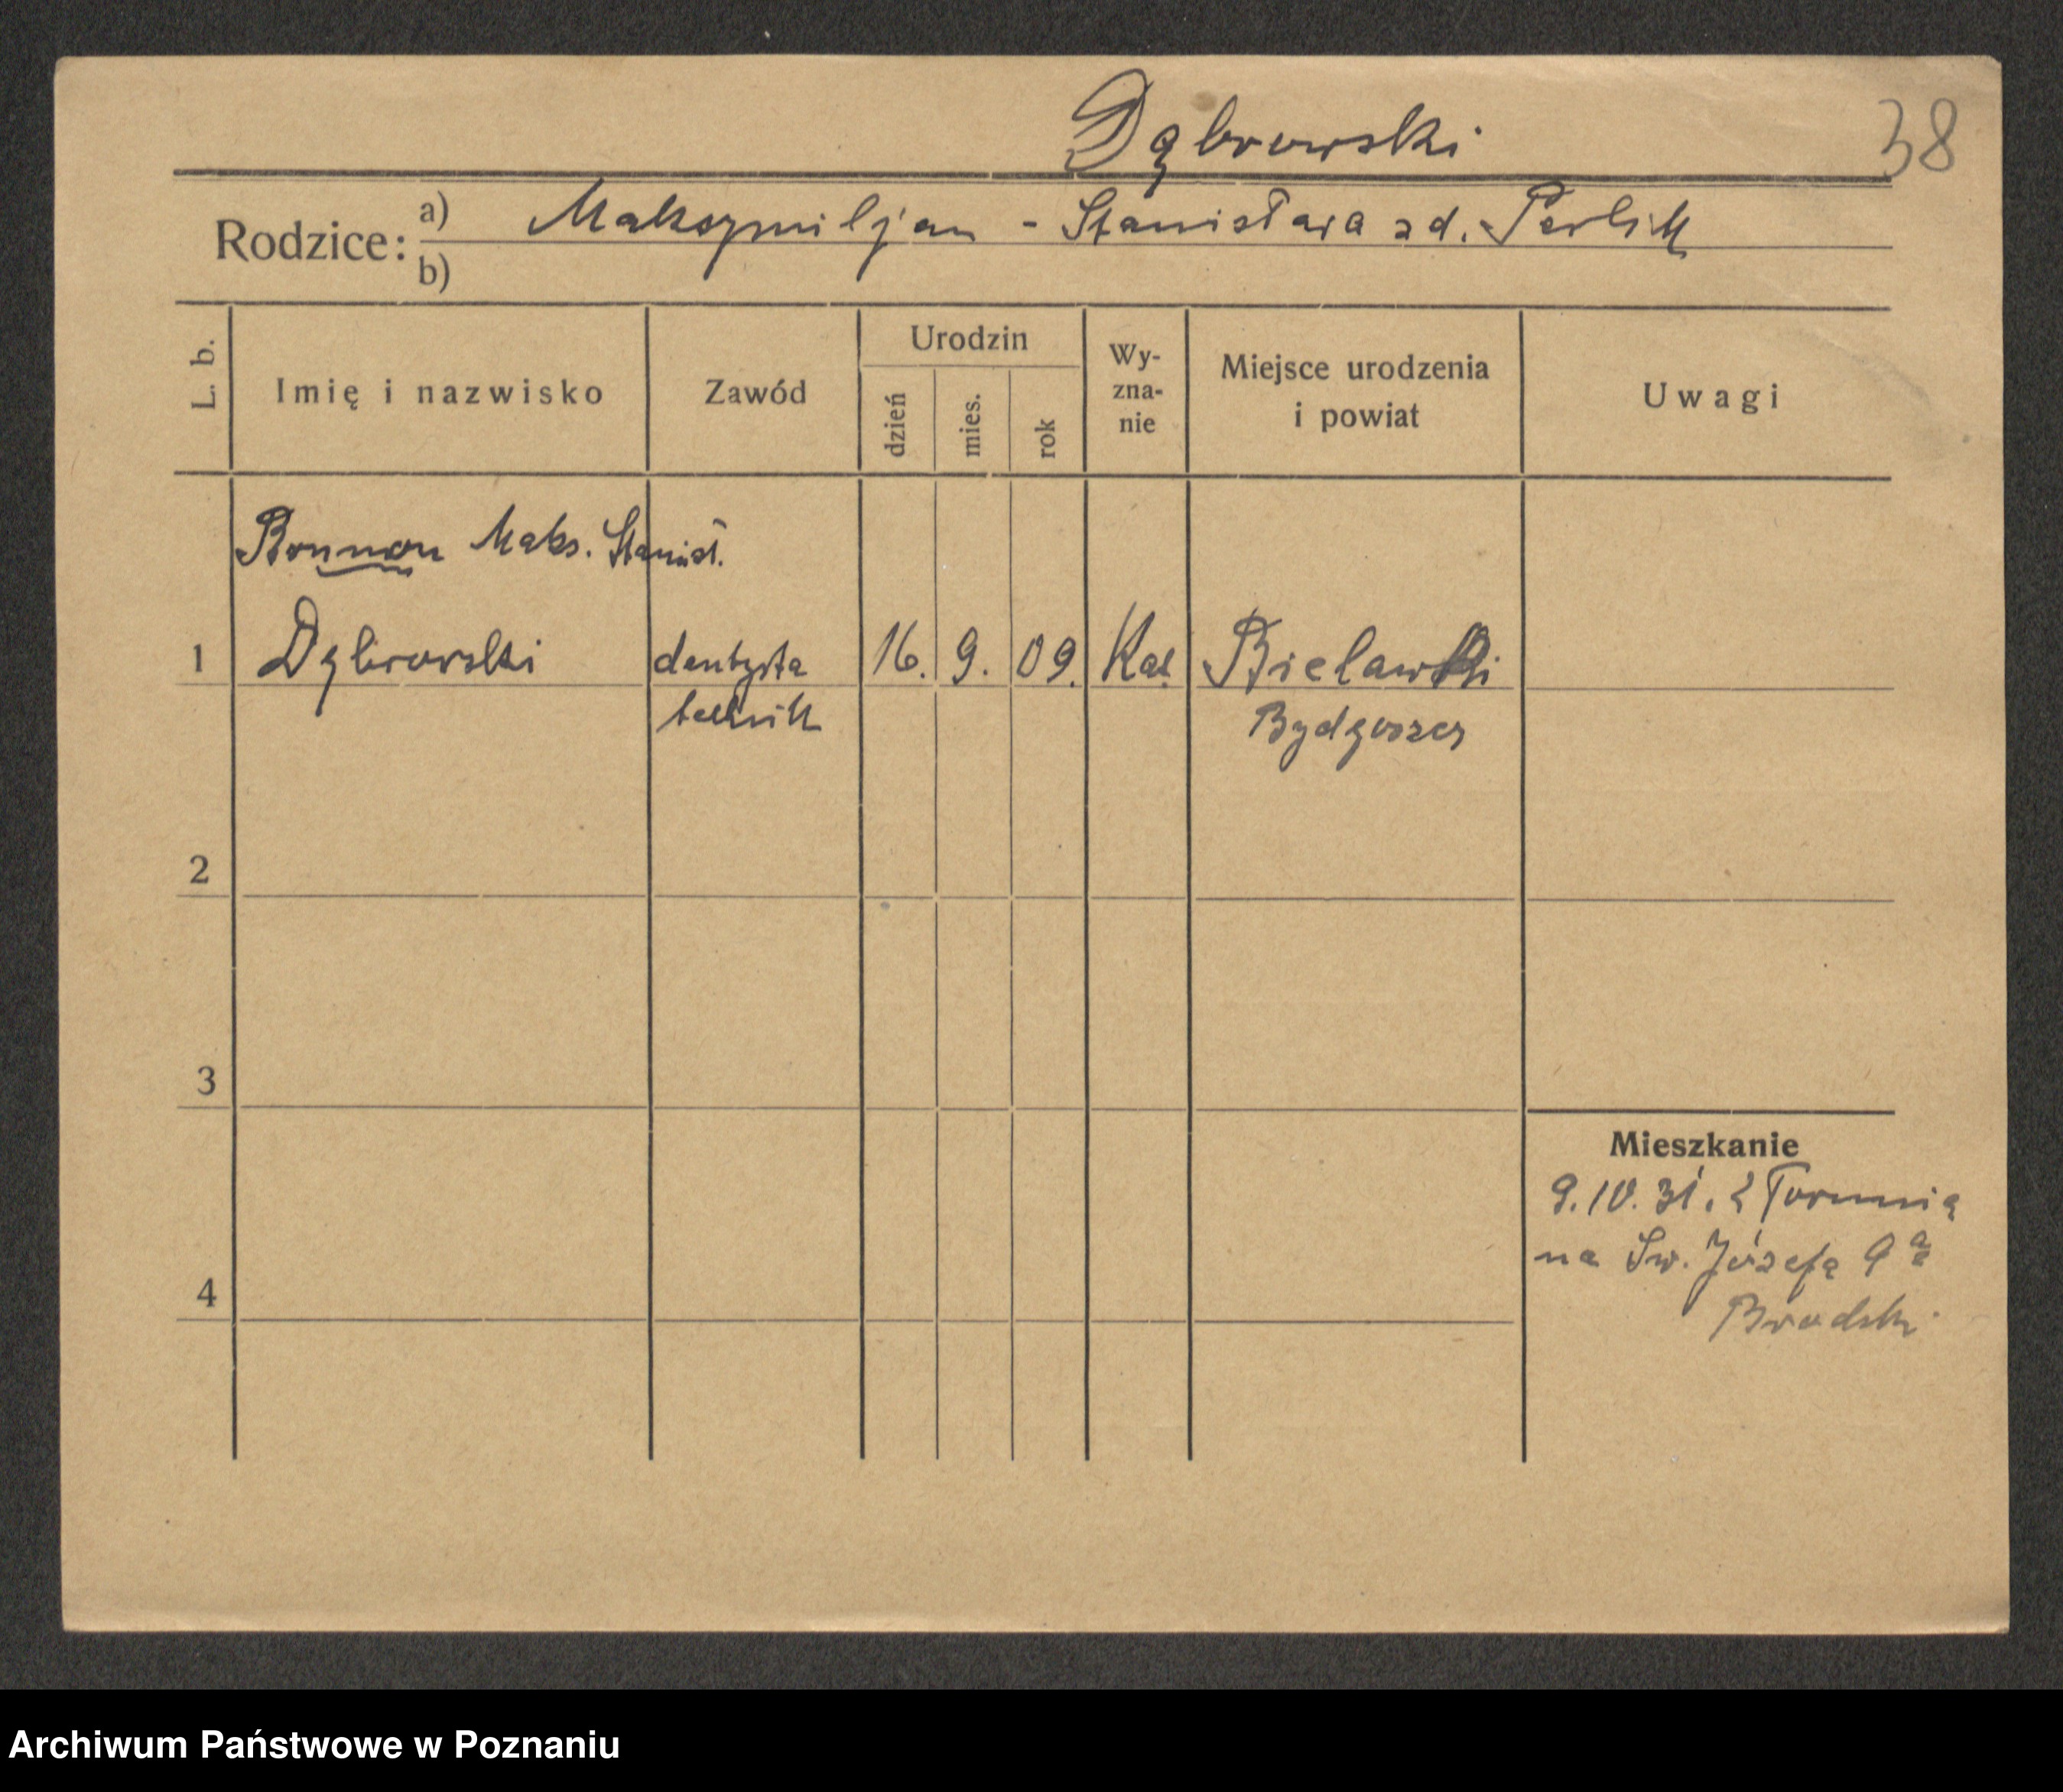 Dąbrowski
38
Rodzice: a) Maksymiljan - Stanisława zd. Perlik
b)
L. b.
Imię i nazwisko
Zawód
Urodzin
dzień
mies.
rok
Wy-
zna-
nie
Miejsce urodzenia
i powiat
Uwagi
Maks. Stanisł.
1 Dąbrowski dentysta 16. 9. 09. Kat. Bielawki
technik Bydgoszcz
2
3
4
Mieszkanie
9. IV. 31. z Torunia
na Św. Józefa 9a